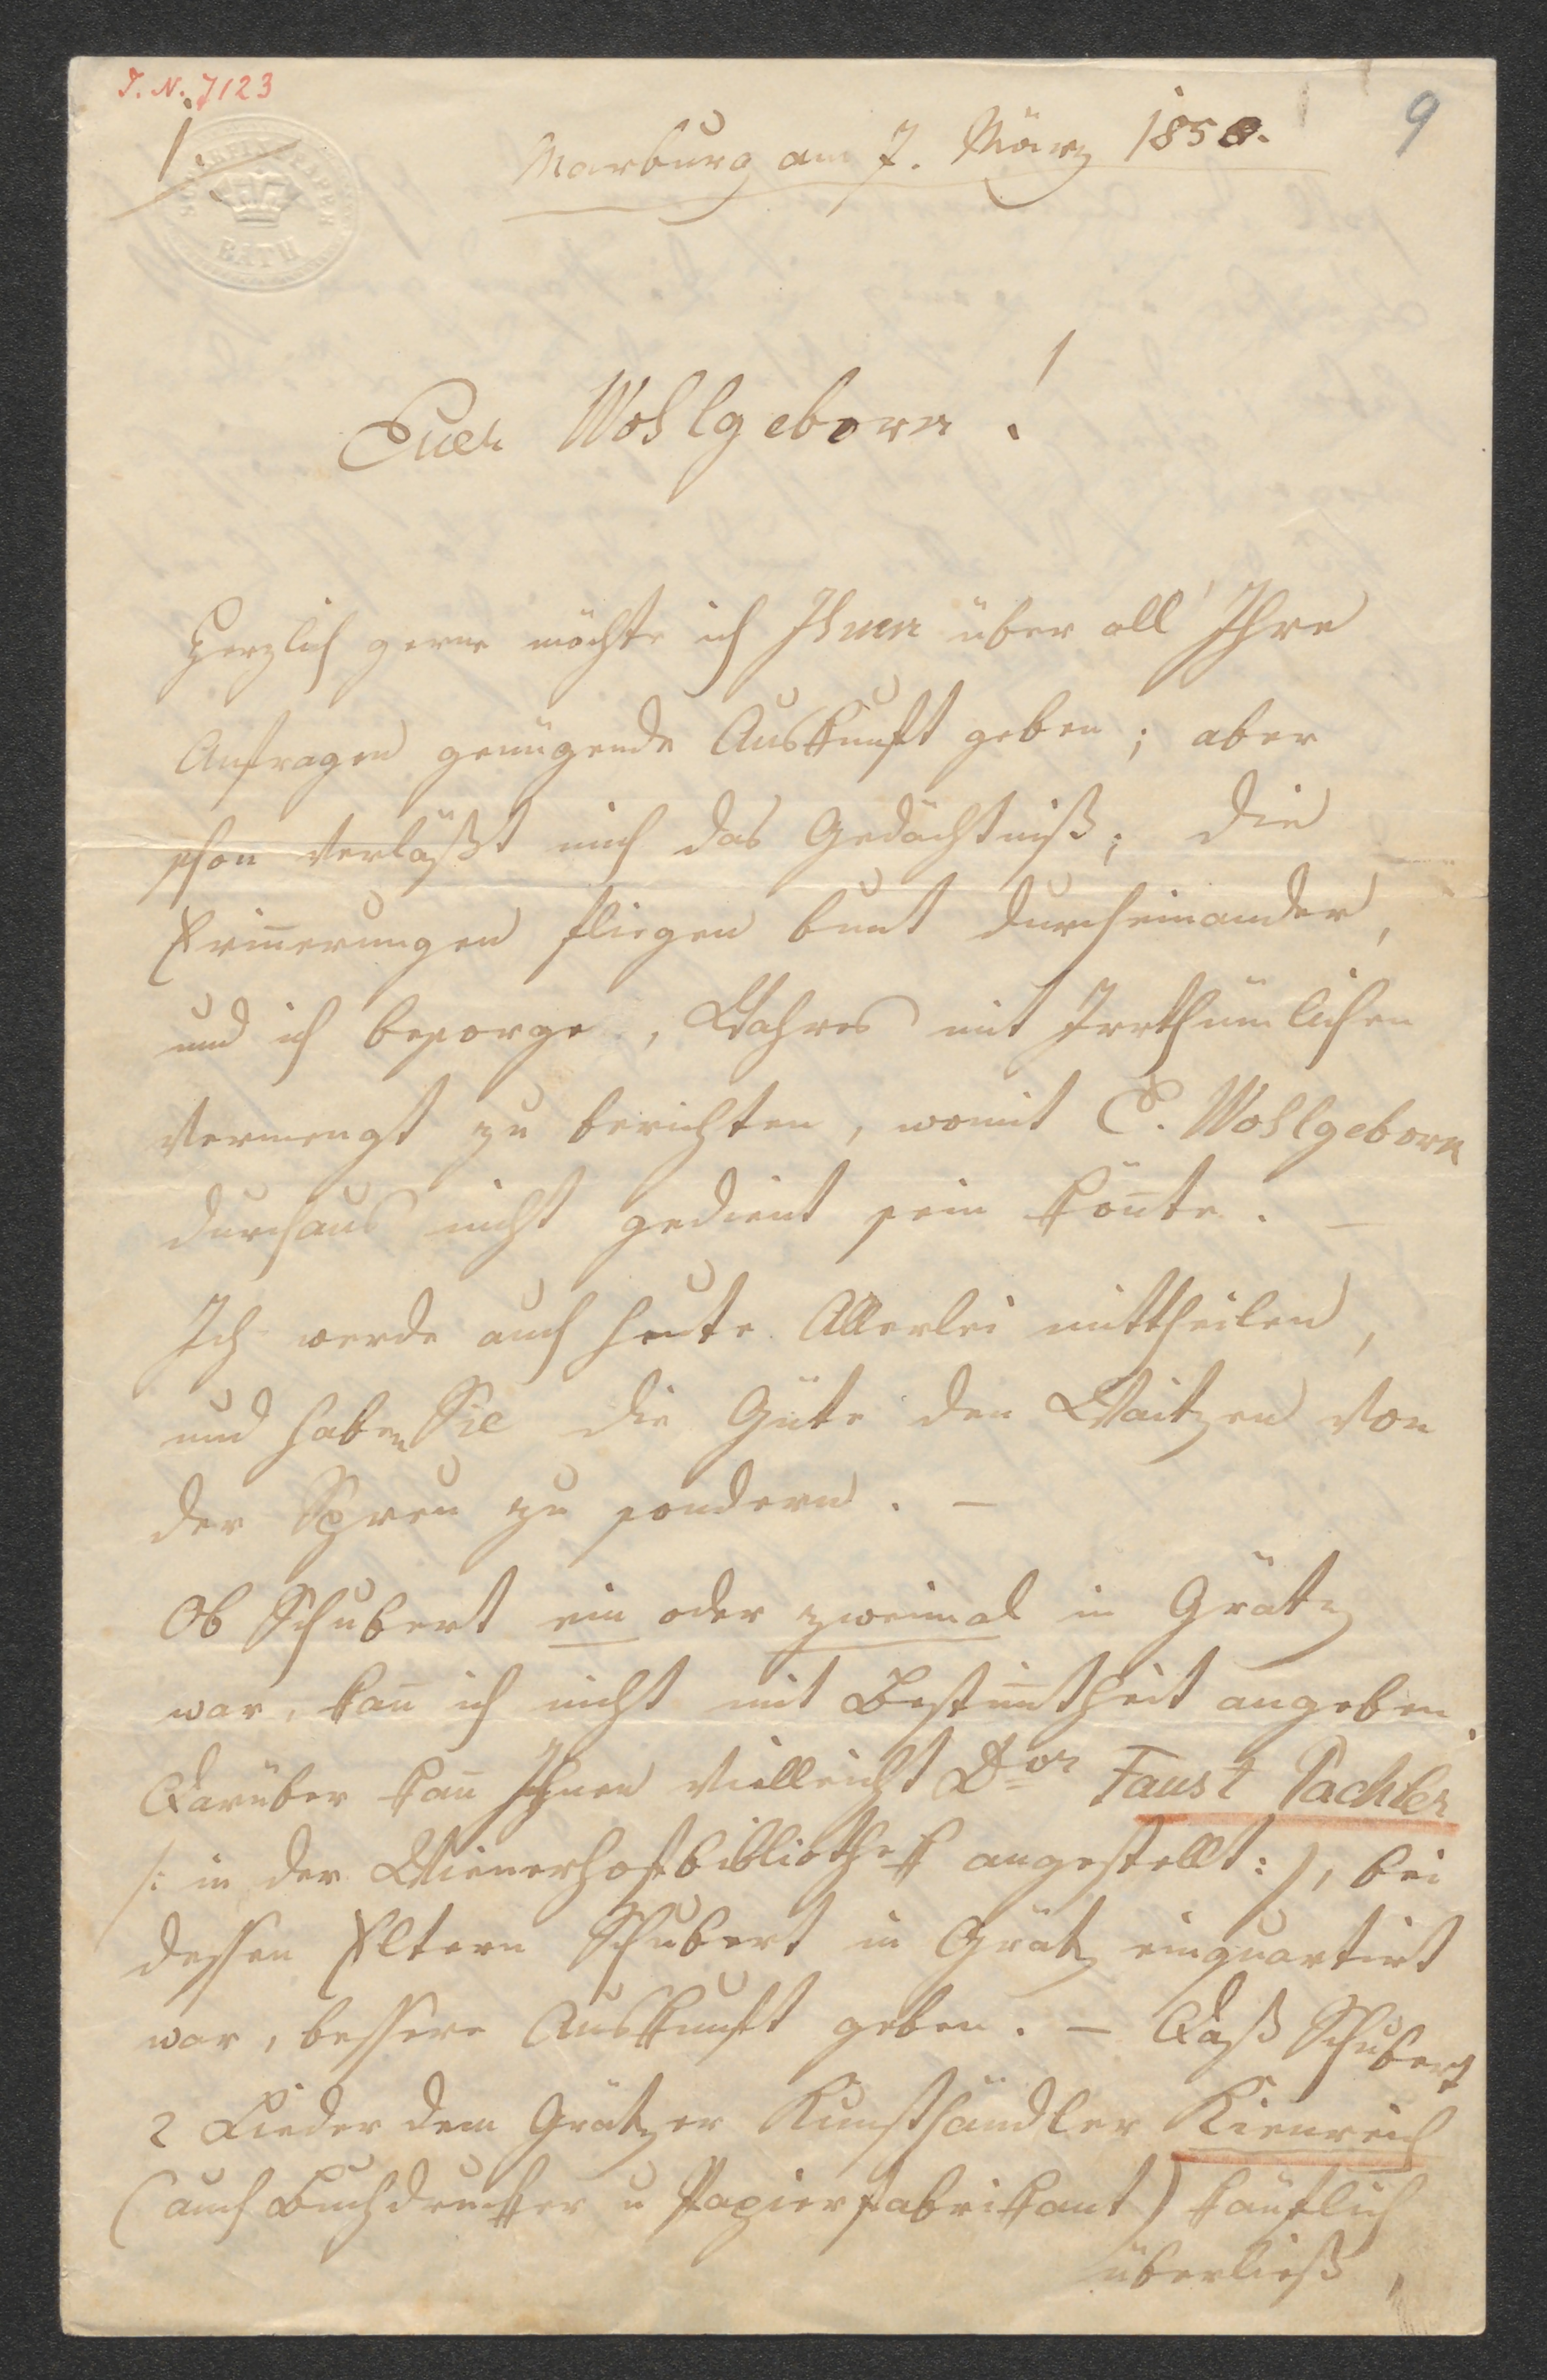 I. N. 7123
1.
9
BATH
Marburg am 7. März 1858.
Euer Wohlgeborn!
Herzlich gerne möchte ich Ihnen über all' Ihre
Anfragen genügende Auskunft geben; aber
schon verläßt mich das Gedächtniß; die
Erin̄erungen fliegen bunt durcheinander,
und ich besorge, Wahres mit Irrthümlichen
vermengt zu berichten, womit E. Wohlgeborn
durchaus nicht gedient sein kön̄te. –
Ich werde auch heute Allerlei mittheilen,
und haben Sie die Güte den Waitzen von
der Spreu zu sondern. –
Ob Schubert ein oder zweimal in Grätz
war, kan̄ ich nicht mit Bestim̄theit angeben.
Darüber kan̄ Ihnen vielleicht Dor Faust Pachler
/: in der Wienerhofbibliothek angestellt :/, bei
dessen Eltern Schubert in Grätz einquartirt
war, bessere Auskunft geben. – Daß Schubert
2 Lieder dem Grätzer Kunsthändler Kienreich
(auch Buchdrucker u Papierfabrikant) käuflich
überließ,